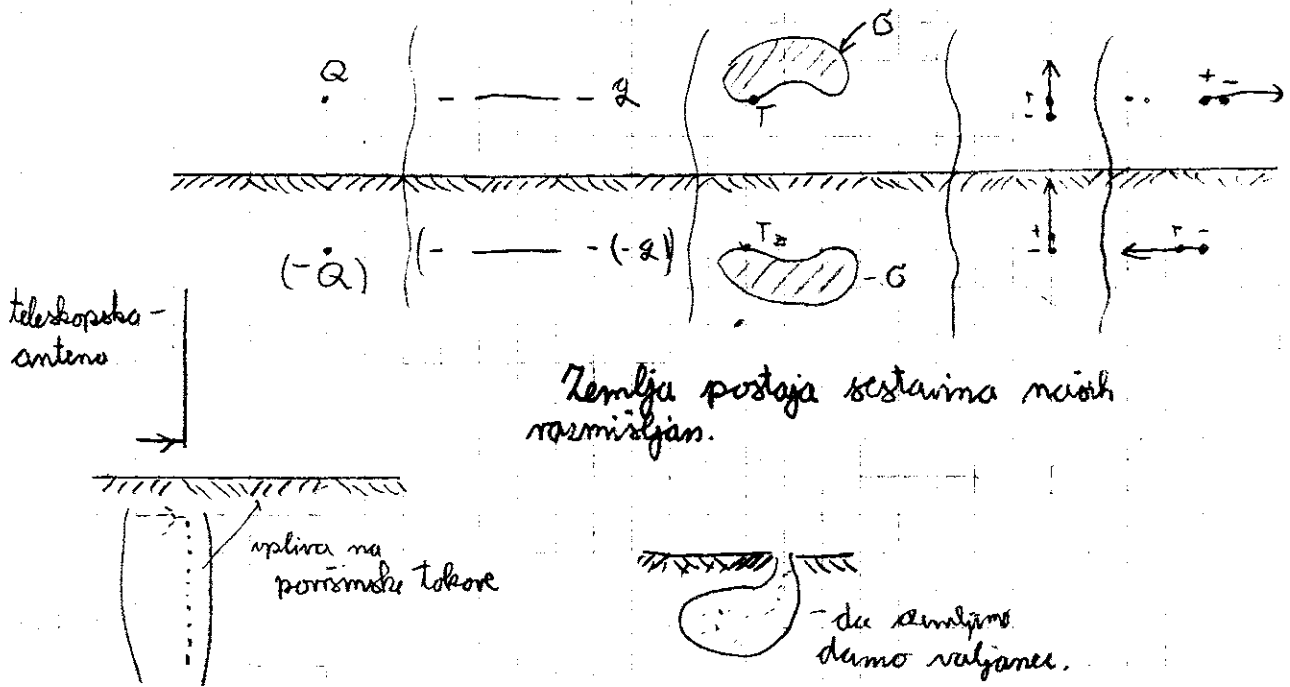 Q
- - q
σ
T
+ -
(-Q)
(- - (-q)
T
-σ
+
-
teleskopska -
antena
Zemlja postaja sestavina naših
razmišljan.
vpliva na
površinske tokove
damo valjanec.